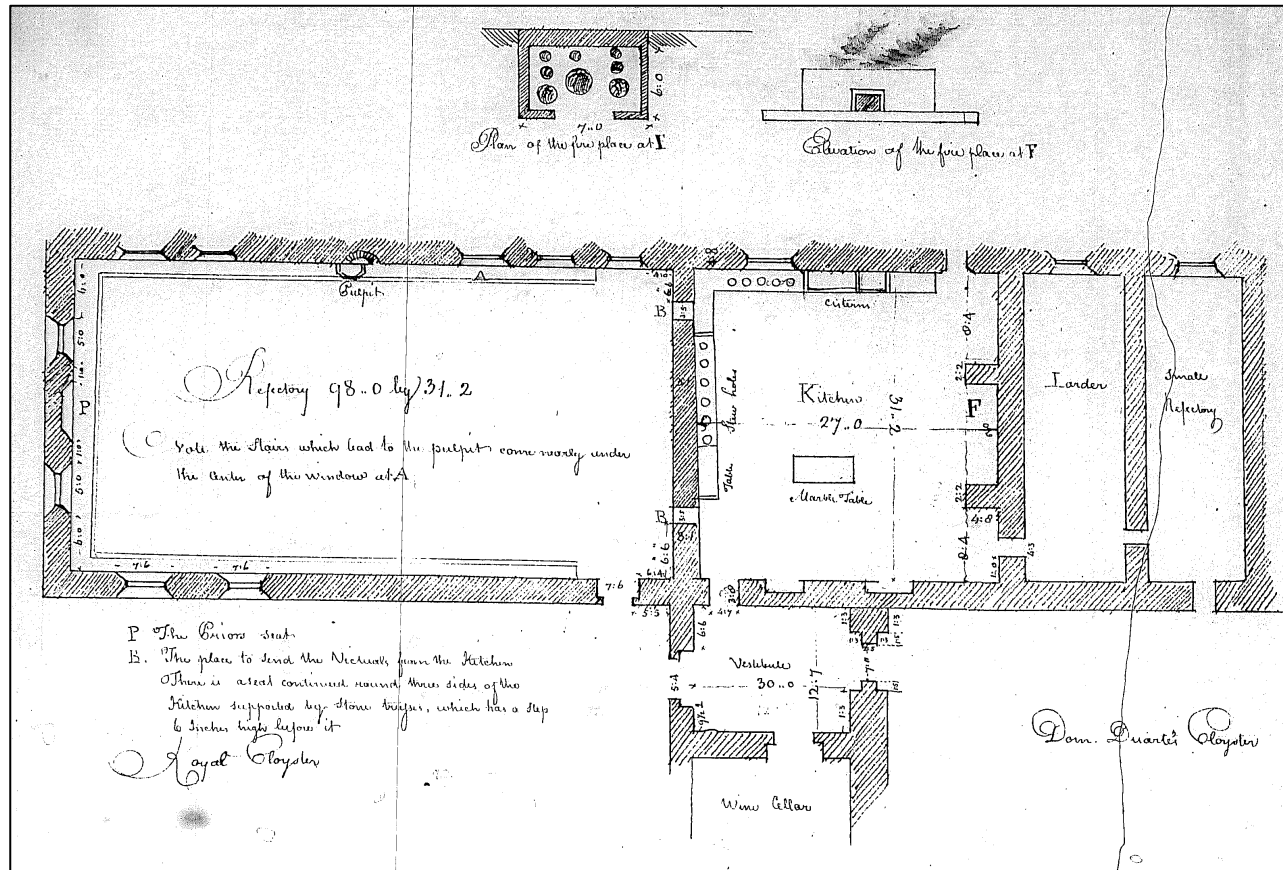 7..0
6:0
Plan of the fire place at F
Elevation of the fire place at F
A
Pulpit
B
Cisterns
Refectory 98..0 by 31..2
Note the Stairs which lead to the pulpit come nearly under
the Center of the window at A
P
Stew holes
Table
Kitchen
27..0
31..2
Marble Table
F
2:2
2:2
4:8
8:4
8:4
4:3
Larder
Small
Refectory
B
7:6
7:6
7:6
5:5
4:7
6:6
6:6
5:4
P The Priors seat
B. The place to send the Victuals from the Kitchen
There is a seat continued round three sides of the
Kitchen supported by Stone tresses, which has a step
6 Inches high before it
Royal Cloyster
Vestibule
30..0
12:7
1:3
1:3
1:3
Wine Cellar
Dom. Duarte's Cloyster